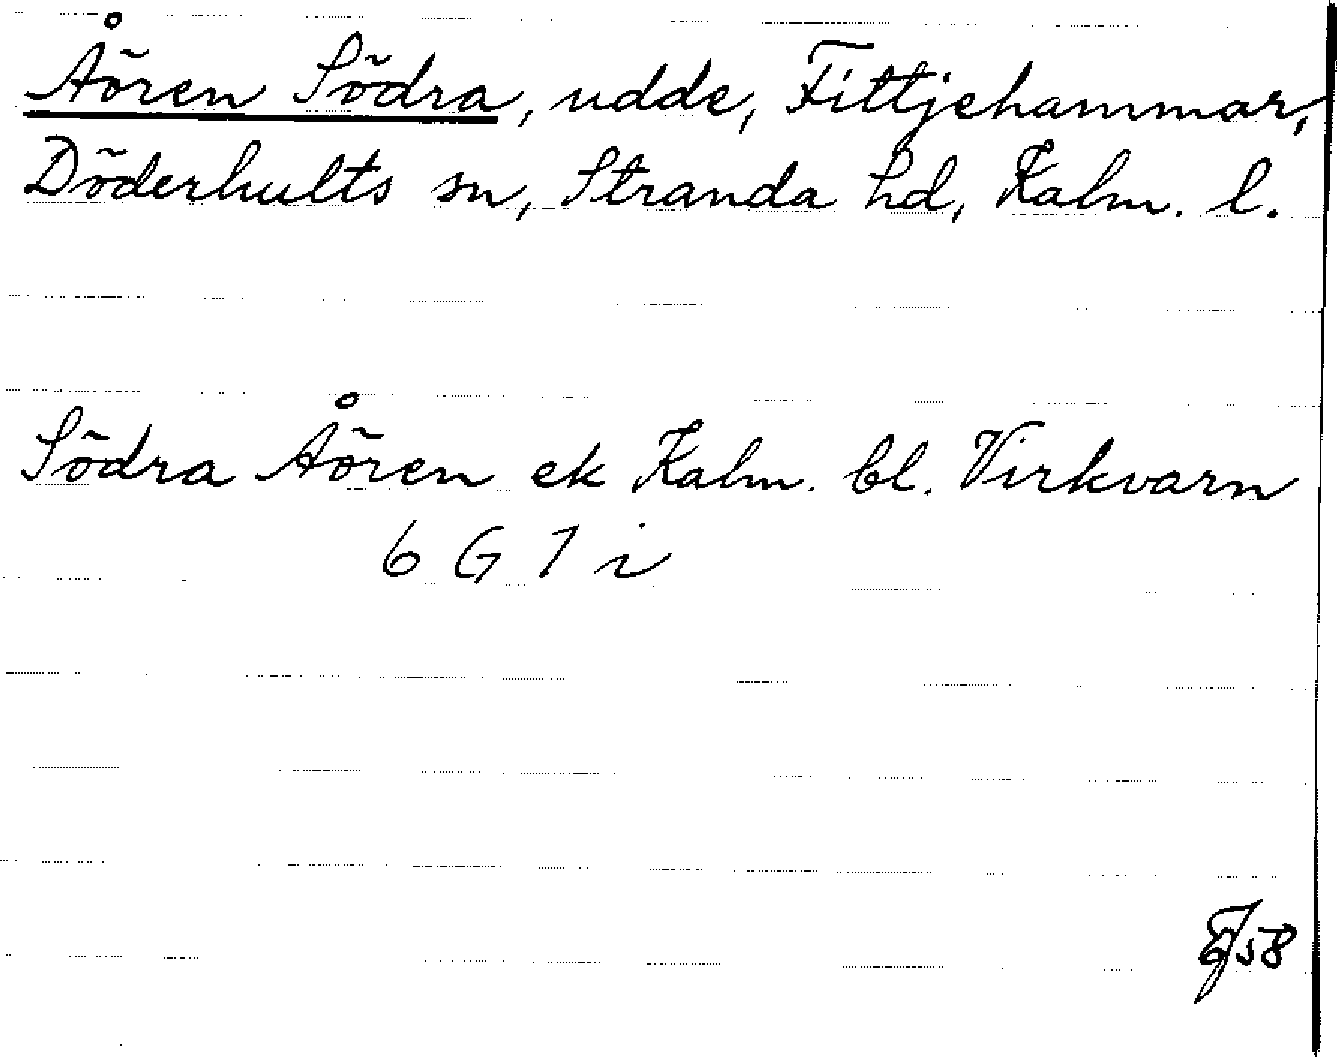 Åören Södra, udde, Fittjehammar,
Döderhults sn, Stranda hd, Kalm. l.
Södra Åören ek Kalm. bl. Virkvarn
6 G 7 i
58